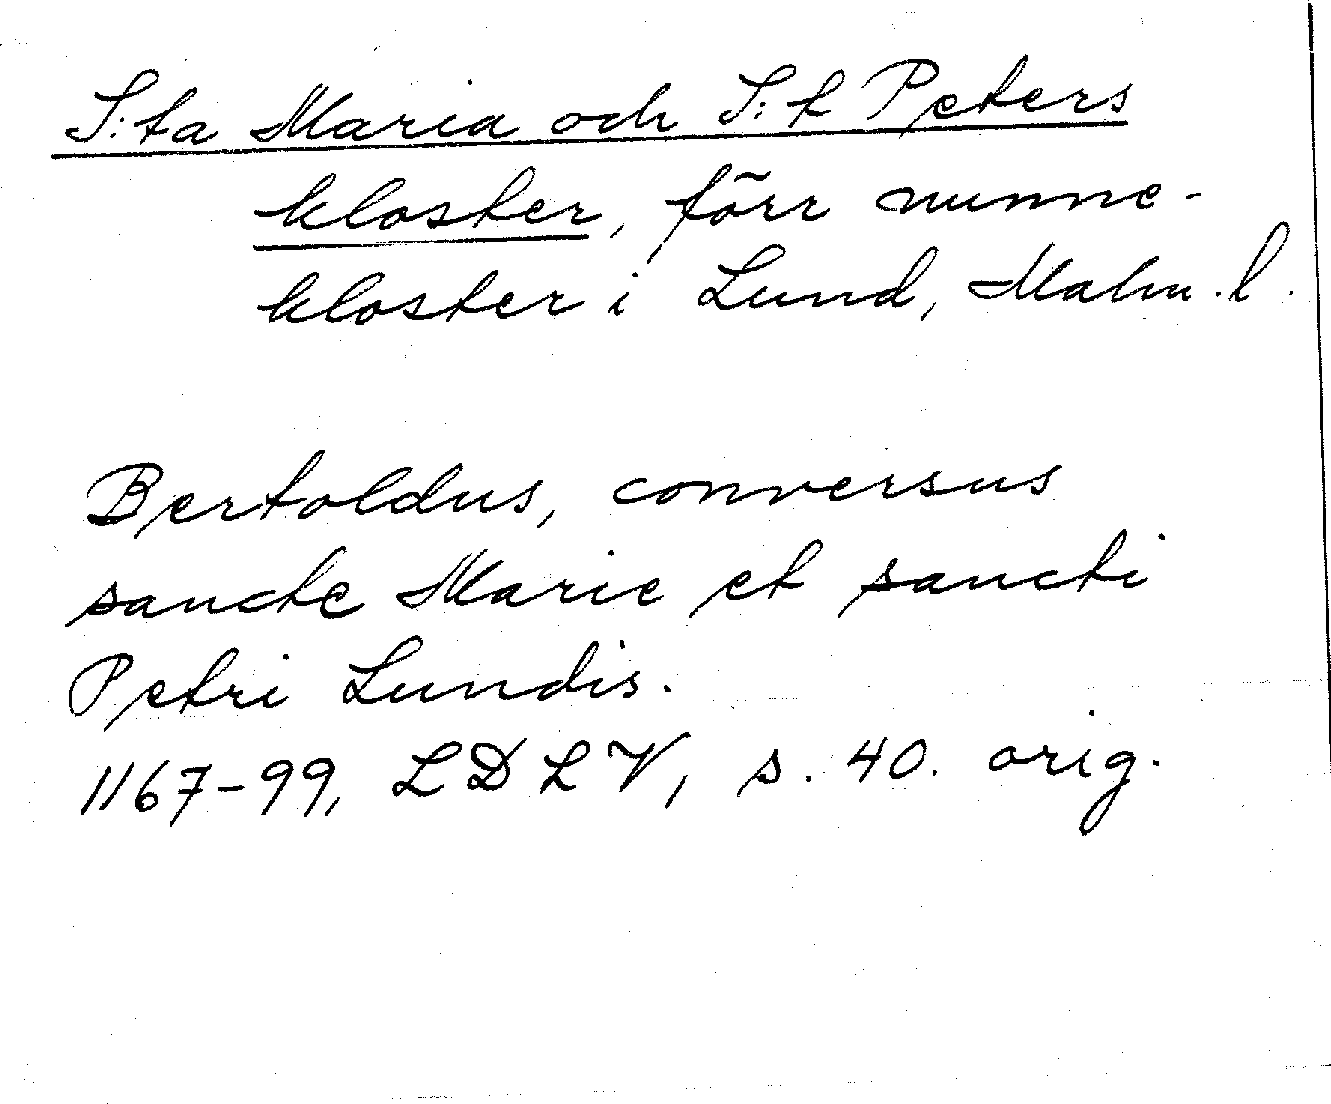 S:ta Maria och S:t Peters
kloster, förr nunne-
kloster i Lund, Malm.l.
Bertoldus, conversus
sancte Marie et sancti
Petri Lundis.
1167-99, LDLV, s. 40. orig.